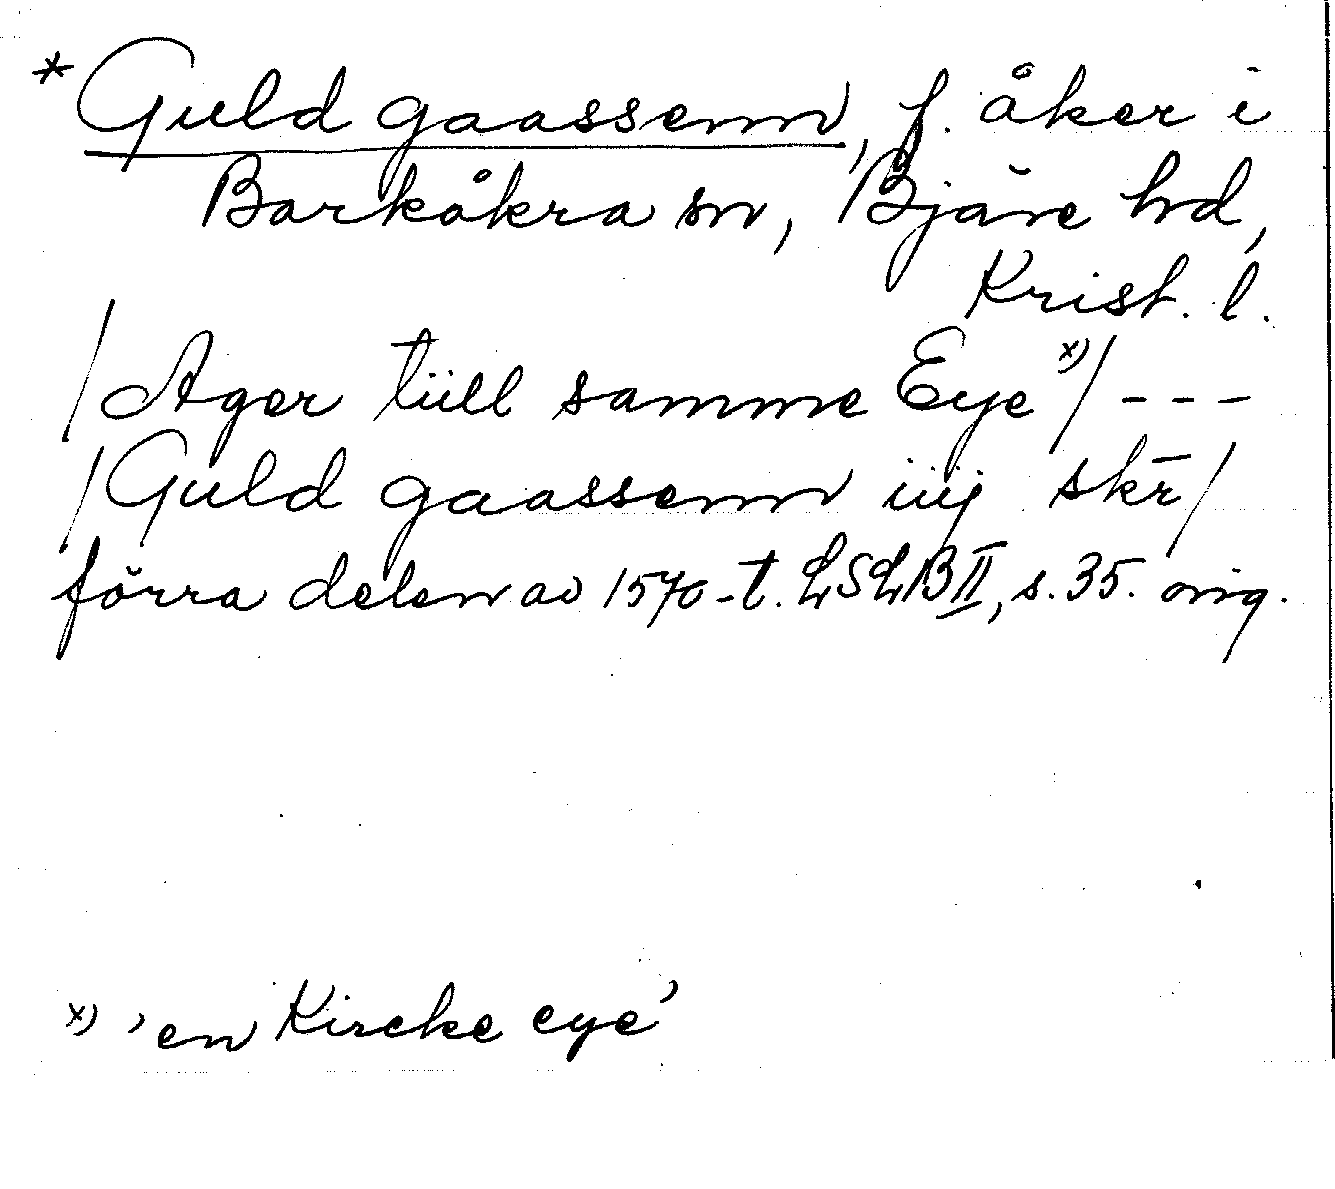 * Guld gaassenn, f. åker i
Barkåkra sn, Bjäre hd,
Krist. l.
/Ager tiill samme Eye x)/ - - -
/Guld gaassenn iiij skr̄/
förra delen av 1570-t. LSLB II, s. 35. orig.
x) 'en Kircke eye'